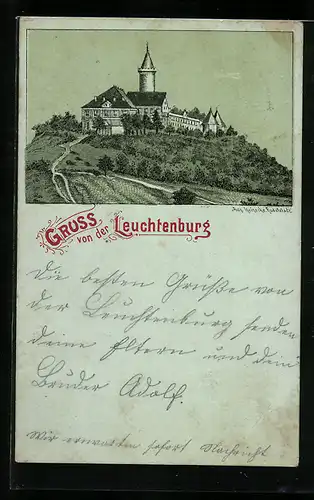 GRUSS
von der Leuchtenburg
Die besten Grüße von
der Leuchtenburg senden
deine Eltern und dein
Bruder Adolf.
Wir erwarten sofort Nachricht